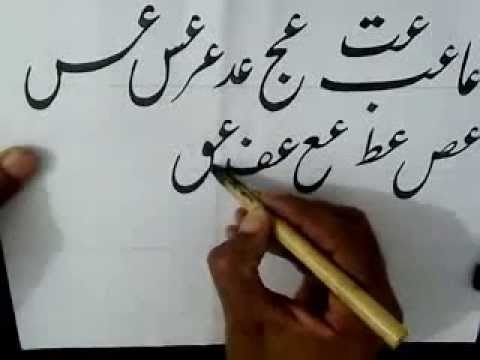 عا عب عت عج عد عر عس عس
عص عط عع عف عق